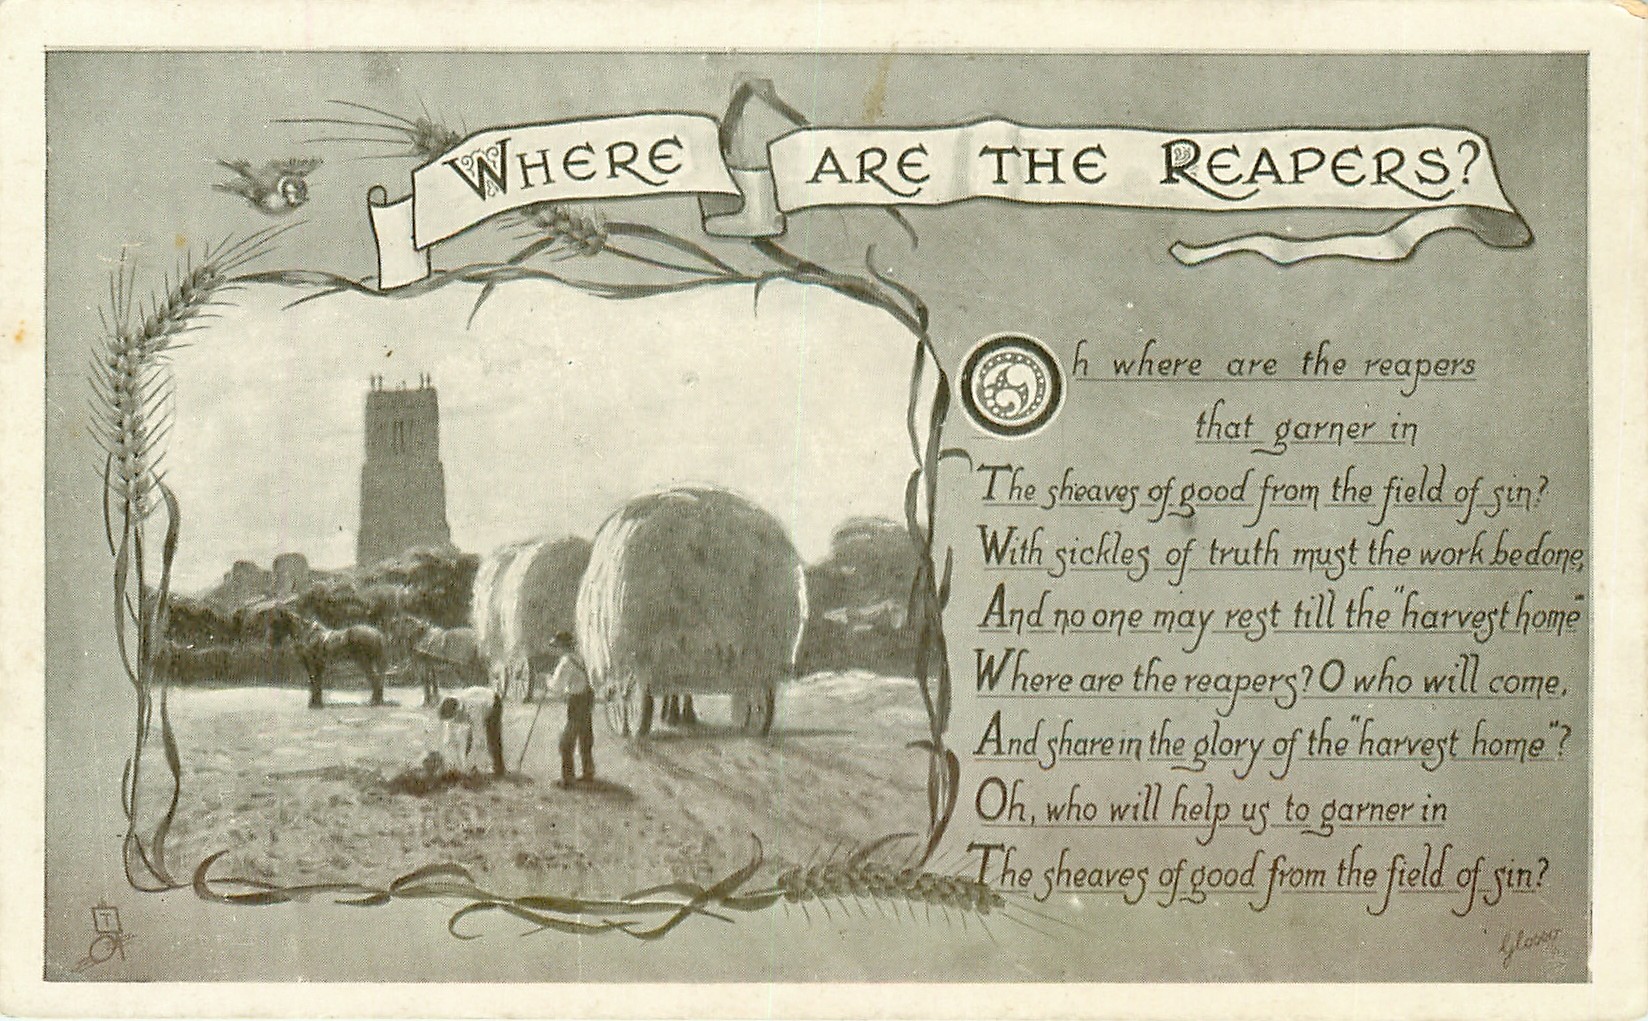 WHERE ARE THE REAPERS?
Oh where are the reapers
that garner in
The sheaves of good from the field of sin?
With sickles of truth must the work be done,
And no one may rest till the "harvest home"
Where are the reapers? O who will come,
And share in the glory of the "harvest home"?
Oh, who will help us to garner in
The sheaves of good from the field of sin?
T
Glosso